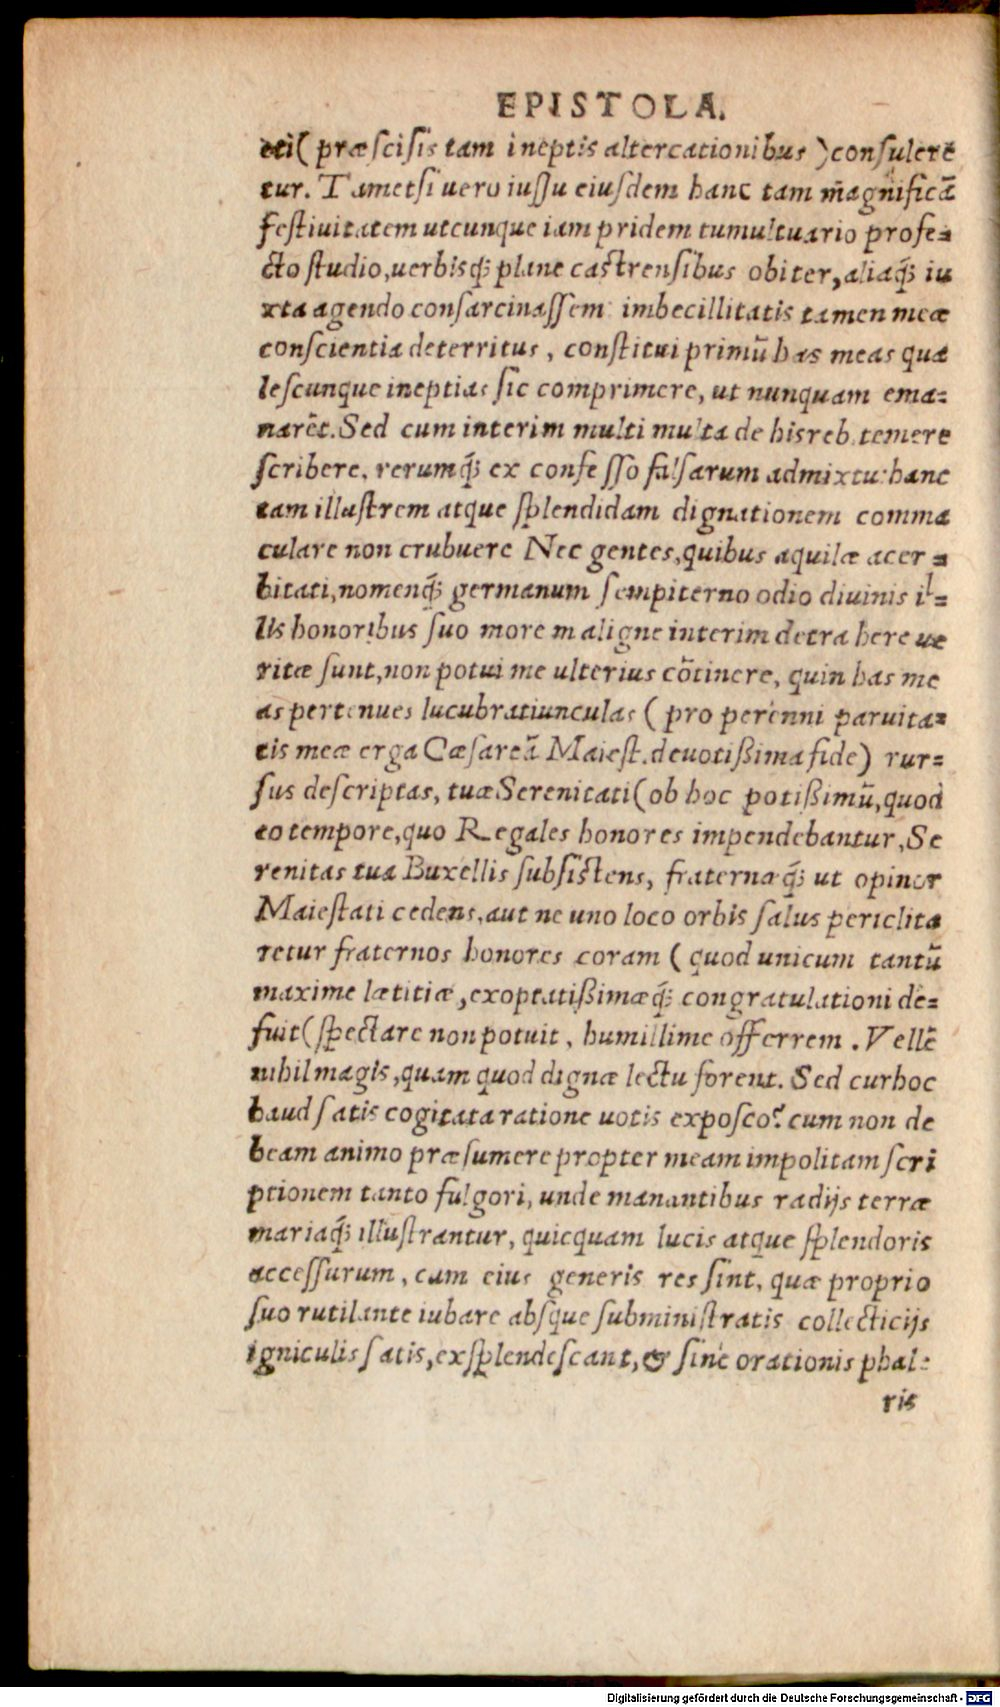 EPISTOLA.
eti( præscisis tam ineptis altercationibus )consulere
tur. Tametsi uero iussu eiusdem hanc tam magnificã
festiuitatem utcunque iam pridem tumultuario profe=
cto studio,uerbisq́; plane castrensibus obiter,aliaq́; iu
xta agendo consarcinassem: imbecillitatis tamen meæ
conscientia deterritus, constitui primũ has meas qua
lescunque ineptias sic comprimere, ut nunquam ema=
narẽt. Sed cum interim multi multa de his reb. temere
scribere, rerumq́; ex confesso falsarum admixtu: hanc
tam illustrem atque splendidam dignationem comma
culare non erubuere Nec gentes,quibus aquilæ acer=
bitati,nomenq́; germanum sempiterno odio diuinis il=
lis honoribus suo more maligne interim detrahere ue
ritæ sunt,non potui me ulterius cõtinere, quin has me
as pertenues lucubratiunculas ( pro perenni paruita=
tis meæ erga Cæsareã Maiest. deuotißima fide) rur=
sus descriptas, tuæ Serenitati( ob hoc potißimũ,quod
eo tempore,quo Regales honores impendebantur,Se
renitas tua Buxellis subsistens, fraternæq́; ut opinor
Maiestati cedens,aut ne uno loco orbis salus periclita
retur fraternos honores coram ( quod unicum tantũ
maxime lætitiæ,exoptatißimæq́; congratulationi de=
fuit( spectare non potuit, humillime offerrem. Vellẽ
nihil magis,quam quod dignæ lectu forent. Sed cur hoc
haud satis cogitata ratione uotis exposco? cum non de
beam animo præsumere propter meam impolitam scri
ptionem tanto fulgori, unde manantibus radijs terræ
mariaq́; illustrantur, quicquam lucis atque splendoris
accessurum, cum eius generis res sint, quæ proprio
suo rutilante iubare absque subministratis collecticijs
igniculis satis,exsplendescant,& sine orationis phal=
ris
Digitalisierung gefördert durch die Deutsche Forschungsgemeinschaft - DFG